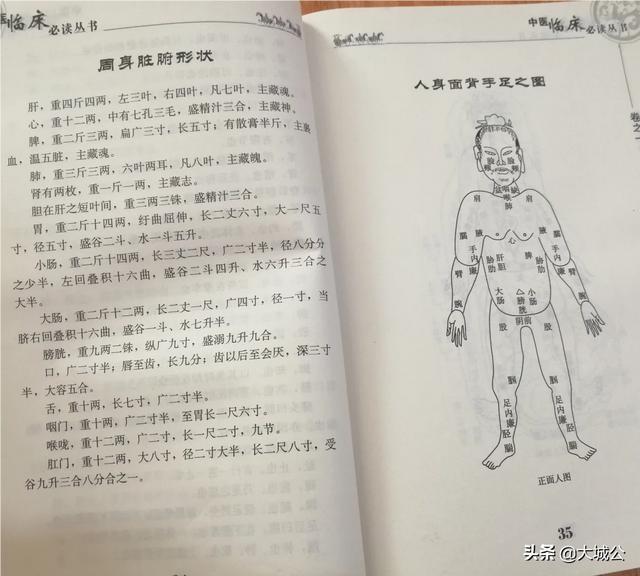 中医临床必读丛书
周身脏腑形状
肝，重四斤四两，左三叶，右四叶，凡七叶，主藏魂。
心，重十二两，中有七孔三毛，盛精汁三合，主藏神。
脾，重二斤三两，扁广三寸，长五寸；有散膏半斤，主裹
血，温五脏，主藏魂。
肺，重三斤三两，六叶两耳，凡八叶，主藏魄。
肾有两枚，重一斤一两，主藏志。
胆在肝之短叶间，重三两三铢，盛精汁三合。
胃，重二斤十四两，纡曲屈伸，长二丈六寸，大一尺五
寸，径五寸，盛谷二斗、水一斗五升。
小肠，重二斤十四两，长三丈二尺，广二寸半，径八分分
之少半，左回叠积十六曲，盛谷二斗四升、水六升三合之
大半。
大肠，重二斤十二两，长二丈一尺，广四寸，径一寸，当
脐右回叠积十六曲，盛谷一斗、水七升半。
膀胱，重九两二铢，纵广九寸，盛溺九升九合。
口，广二寸半；唇至齿，长九分；齿以后至会厌，深三寸
半，大容五合。
舌，重十两，长七寸，广二寸半。
咽门，重十两，广二寸半，至胃长一尺六寸。
喉咙，重十二两，广二寸，长一尺二寸，九节。
肛门，重十二两，大八寸，径二寸大半，长二尺八寸，受
谷九升三合八分合之一。
中医临床必读丛书
卷之一
人身面背手足之图
肩 喉 肩
肺
腋 腋
心
手内廉 手内廉
臂 胁肋 肝胆 脾 胁肋 臂
腕 大肠 膀胱 小肠 腕
阴前
股 股
足内廉 足内廉
胫 胫
正面人图
35
头条 @大城公